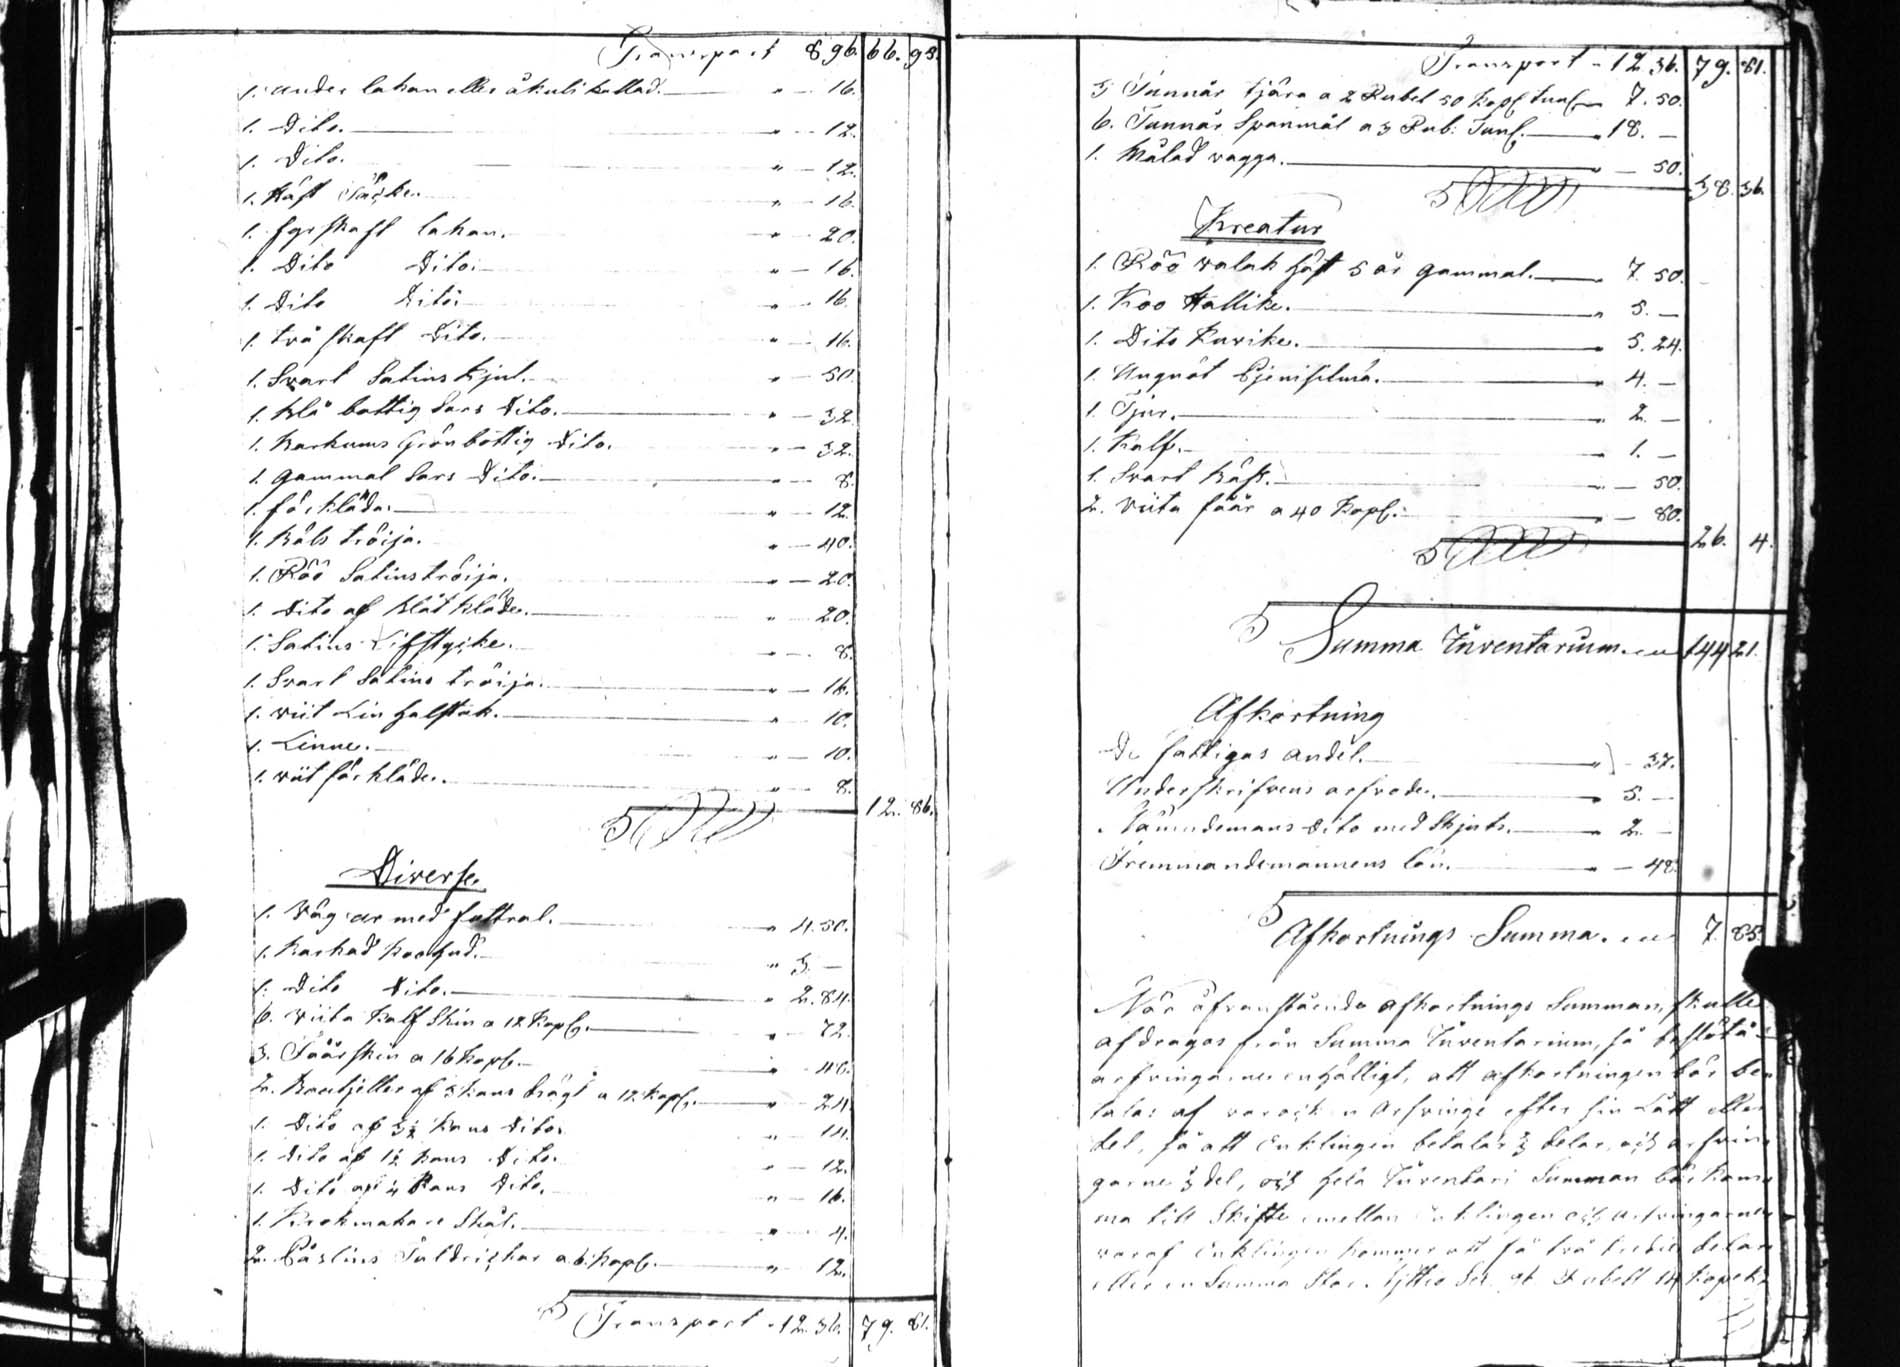 Transport 896. 66. 95.
1. under lakan eller åkuli kallad. " — 16.
1. Dito. " — 12.
1. Dito. " — 12.
1. Häst Täcke. " — 16.
1. fyrskaft lakan. " — 20.
1. Dito Dito. " — 16.
1. Dito Dito. " — 16.
1. två skaft Dito. " — 16.
1. Svart Satins kjol. " — 50.
1. blå bottig Sars Dito. " — 32.
1. Karkums Grön bottig Dito. " — 32.
1. gammal Sars Dito. " — 8.
1. förkläde. " — 12.
1. tröija. " — 40.
1. Röö Satins tröija. " — 20.
1. Dito af kläde. " — 20.
1. Satins Lifstycke. " — 8.
1. Svart Satins tröija. " — 16.
1. viit Lin halsduk. " — 10.
1. Linne. " — 10.
1. viit förkläde. " — 8.
12. 86.
Diverse.
1. Väg med futtral. " 4. 50.
1. Karkad koohud. " 3. —
1. Dito Dito. " 2. 84.
6. viita kalf skin a 12 Kop. " — 72.
3. Fåårskin a 16 kop. " — 48.
2. af 3 kans a 12 kop. " — 24.
1. Dito af 3½ kans Dito. " — 14.
1. Dito af 1½ kans Dito. " — 12.
1. Dito af 4 Kans Dito. " — 16.
1. Krokmakare Skål. " — 4.
2. Påslins Taldrickar a 6 kop. " — 12.
Transport " 12. 36. 79. 81.
Transport " 12. 36. 79. 81.
3 Tunnår tjära a 2 Rubel 50 kop tun " 7. 50.
6. Tunnår Spanmål a 3 Rub. Tun. " 18. —
1. Målad vagga. " — 50.
38. 36.
Kreatur
1. Röö valak häst 5 år gammal. " 7. 50.
1. Koo Hallike. " 5. —
1. Dito Kurike. " 5. 24.
1. Ungnöt " 4. —
1. Tjur. " 2. —
1. Kalf. " 1. —
1. Svart " — 50.
2. viita fåår a 40 kop. " — 80.
26. 4.
Summa Inventarium. 144 21.
Afkortning
De fattigas andel. " — 37.
Underskrifvens arfvode. " 5. —
Nämndemans Dito med Skjuts. " 2. —
Fremmandemannens lön. " — 48.
Afkortnings Summa. 7. 85.
När ofvanstående afkortnings Summan, skulle
afdragas från Summa Inventarium, så
arfvingarne enhälligt, att afkortningen bör be-
talas af arfvinge efter sin Lått eller
del, så att Enklingen betalar ⅔ delar, och arfvin-
garne ⅓ del, och hela Inventari Summan bör kom-
ma till Skifte emellan Enklingen och arfvingarne
varaf Enklingen kommer att få två tredie delar
eller en Summa Stor. Rubell 14 kopek